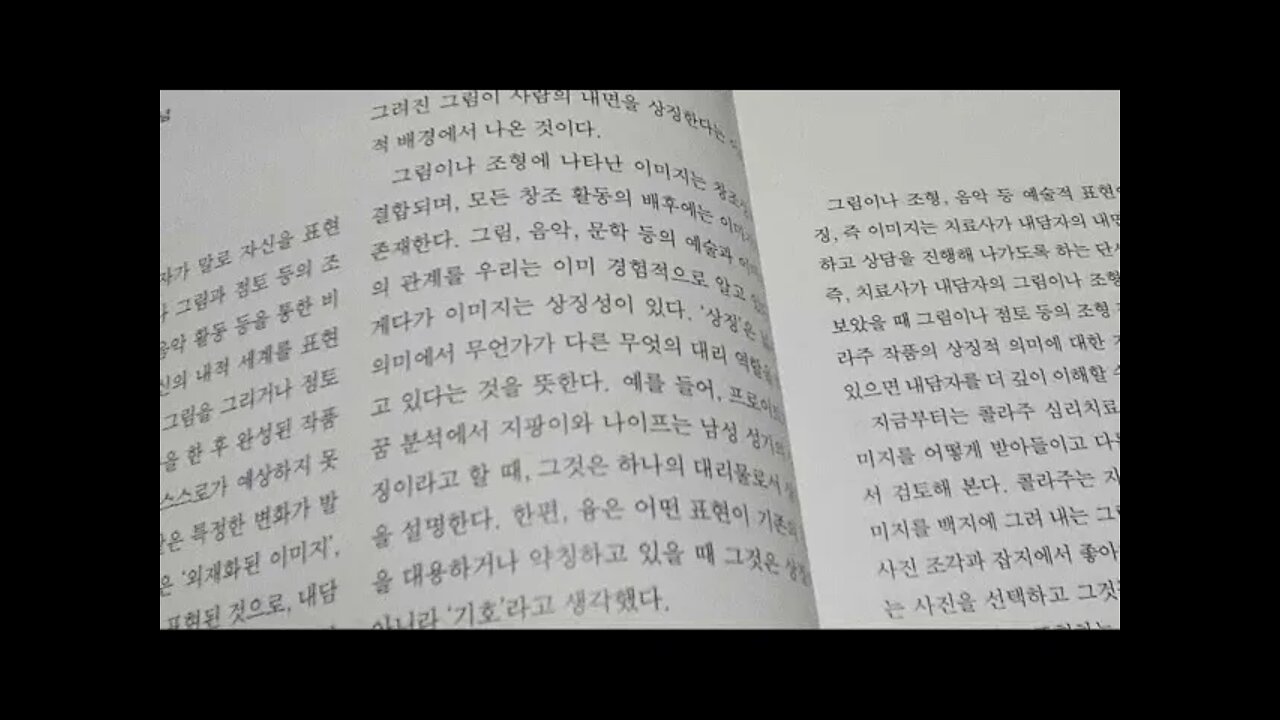 자가 말로 자신을 표현
그림과 점토 등의 조
음악 활동 등을 통한 비
신의 내적 세계를 표현
그림을 그리거나 점토
을 한 후 완성된 작품
스스로가 예상하지 못
같은 특정한 변화가 발
은 '외재화된 이미지',
표현된 것으로, 내담
그려진 그림이 사람의 내면을 상징한다는
적 배경에서 나온 것이다.
그림이나 조형에 나타난 이미지는
결합되며, 모든 창조 활동의 배후에는
존재한다. 그림, 음악, 문학 등의 예술과
의 관계를 우리는 이미 경험적으로 알고
게다가 이미지는 상징성이 있다. '상징'은
의미에서 무언가가 다른 무엇의 대리 역할을
고 있다는 것을 뜻한다. 예를 들어,
꿈 분석에서 지팡이와 나이프는 남성 성기의
징이라고 할 때, 그것은 하나의 대리물로서
을 설명한다. 한편, 융은 어떤 표현이 기존의
을 대용하거나 약칭하고 있을 때 그것은
아니라 '기호'라고 생각했다.
그림이나 조형, 음악 등 예술적
징, 즉 이미지는 치료사가 내담자의 내면
하고 상담을 진행해 나가도록 하는
즉, 치료사가 내담자의 그림이나 조형
보았을 때 그림이나 점토 등의 조형
라주 작품의 상징적 의미에 대한
있으면 내담자를 더 깊이 이해할
지금부터는 콜라주 심리치료
미지를 어떻게 받아들이고
서 검토해 본다. 콜라주는
미지를 백지에 그려 내는
사진 조각과 잡지에서 좋아
는 사진을 선택하고